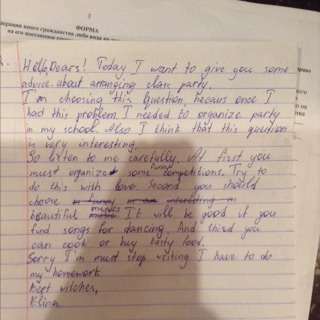 ФОРМА
Hello, Dears! Today I want to give you some
advice about arranging class party.
I'm choosing this question, becaus once I
had this problem. I needed to organize party
in my school. Also I think that this question
is very interesting.
So listen to me carefully. At first you
must organize some funny competitions. Try to
do this with love. Second you should
choose
beautiful It will be good if you
find songs for dancing. And third you
can cook or buy tasty food.
Sorry I'm must stop writing I have to do
my homework
Best witches,